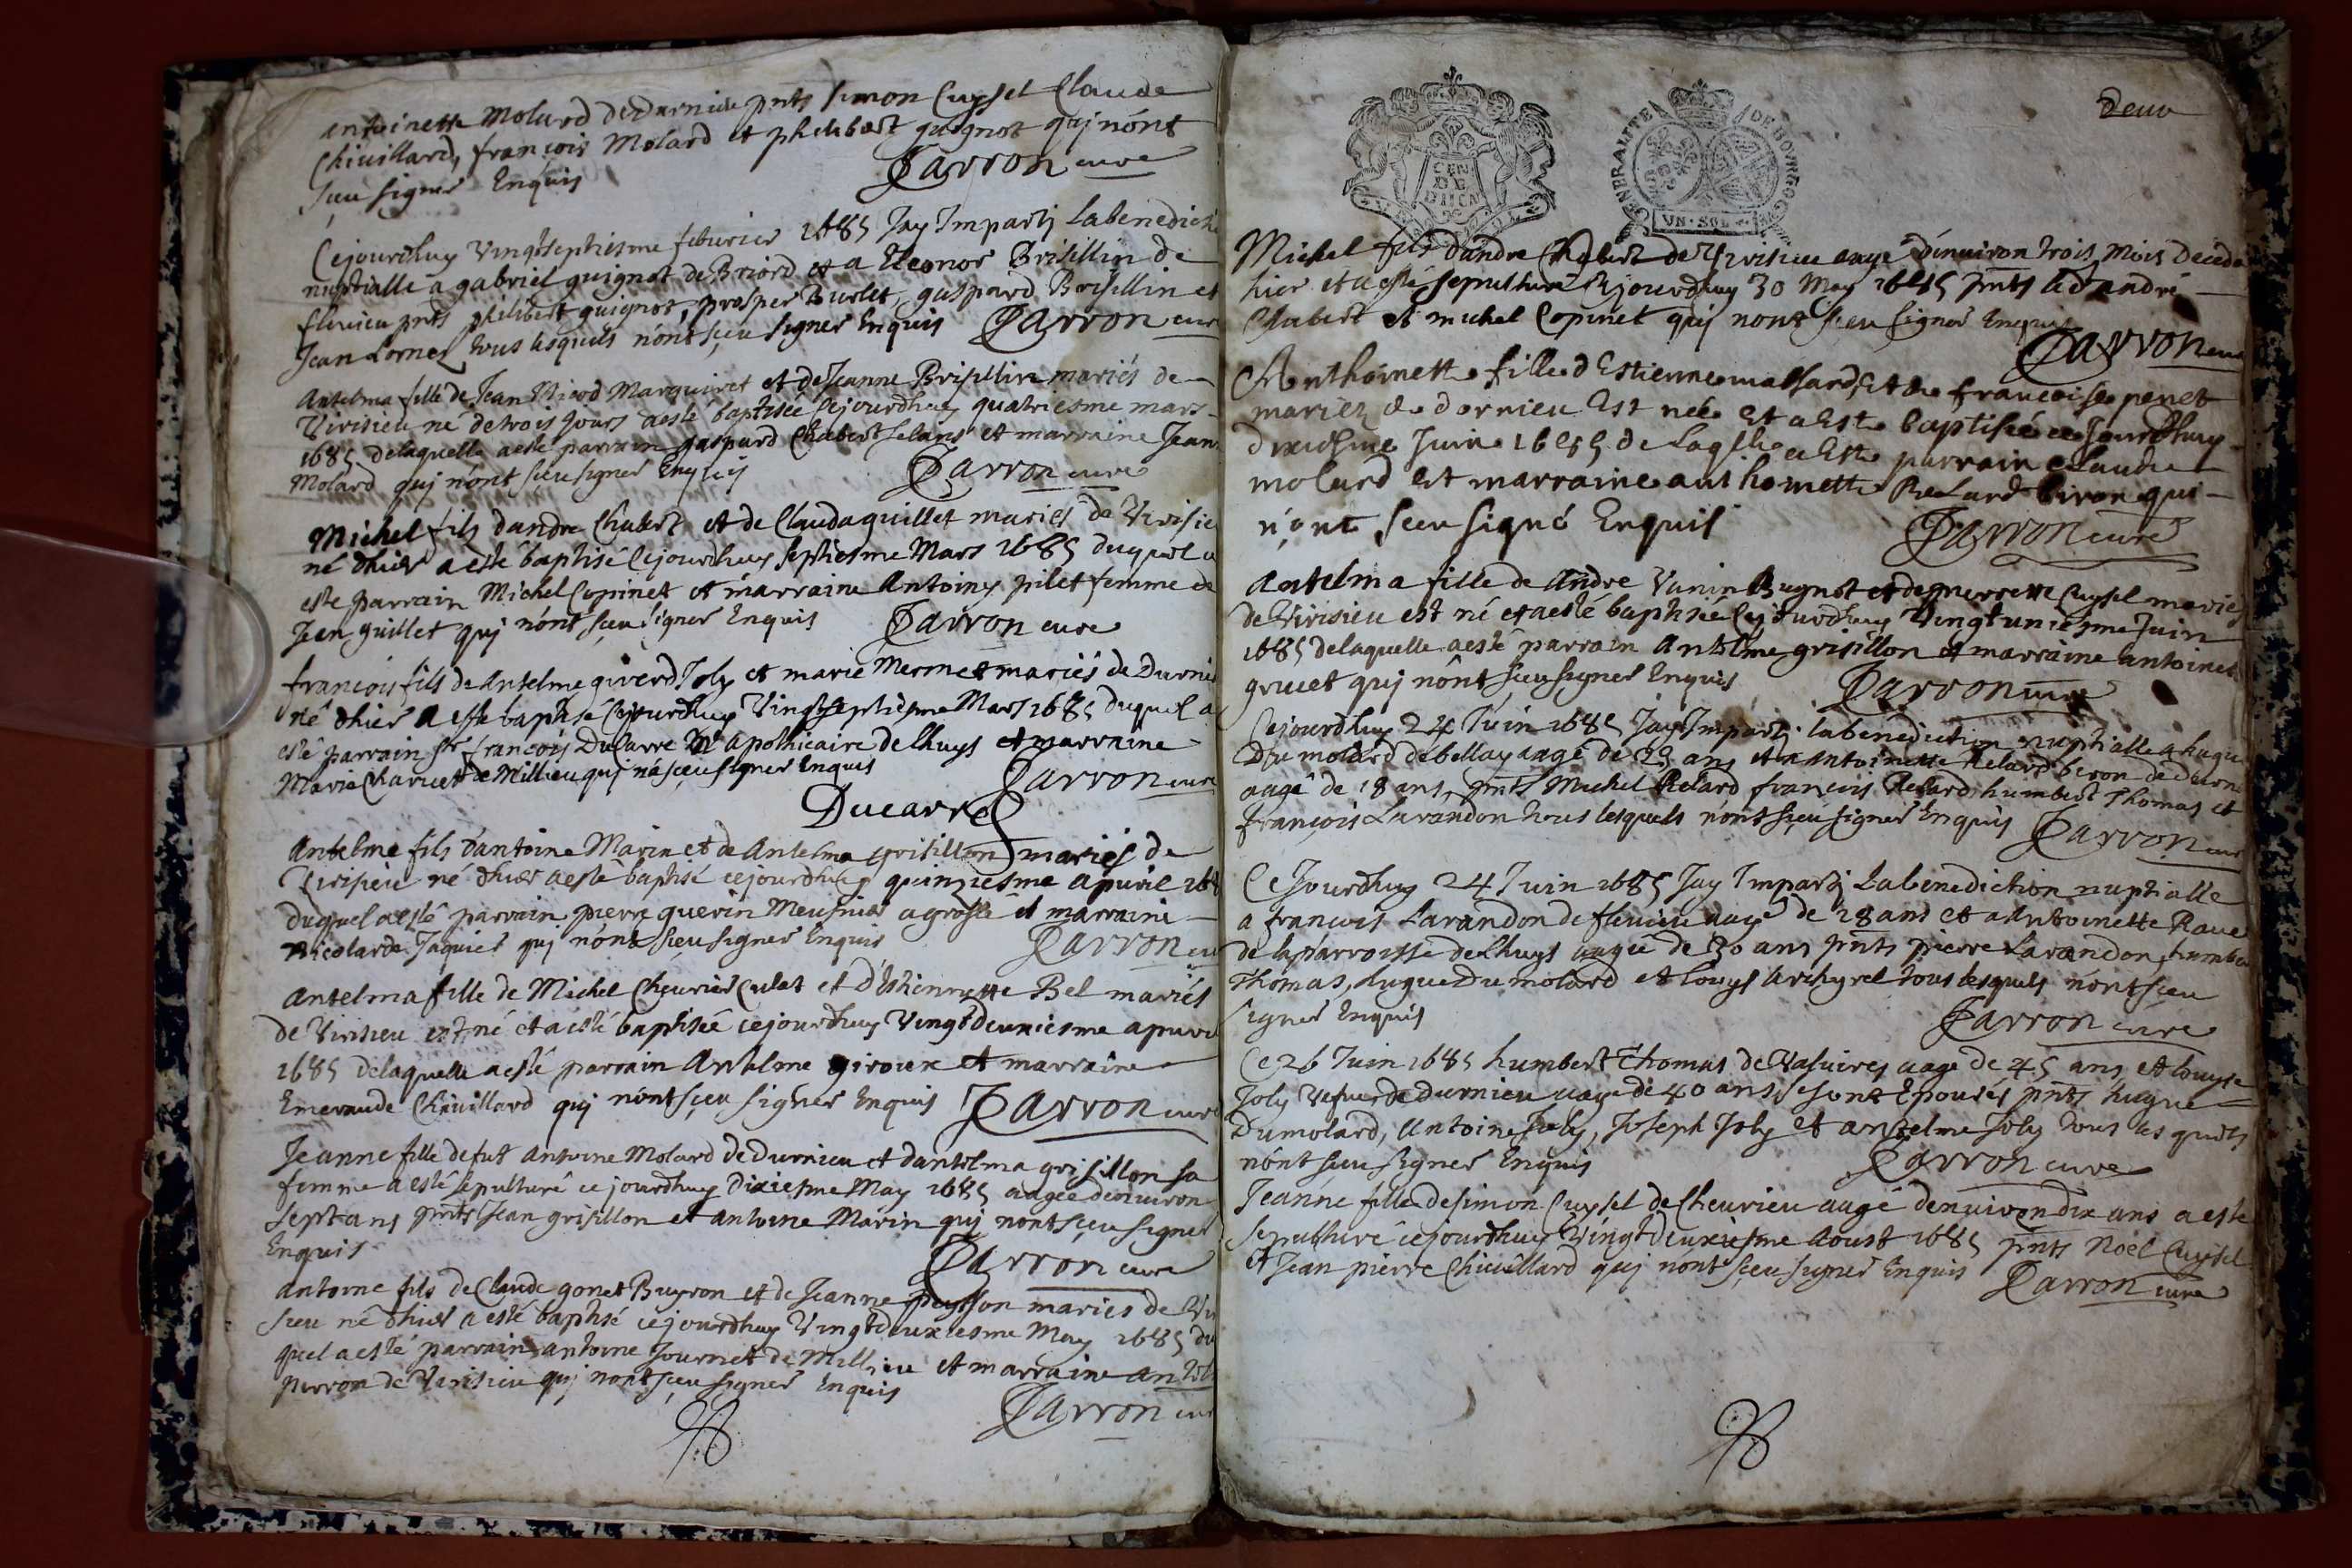 antoinette Molard de Durnieu pnts simon Cuysel Claude
Chivillard, françois Molard et philibert guignot qui nónt
sceu signer Enquis Parron curé
Cejourdhuy Vingtseptiesme feburier 1685 Jay Imparti La benedictio
nuptialle a gabriel guignot de Briord et a Eleonor Brisillin de
flevieu pnts philibert guignot, prosper Burlet, gaspard Brisillin et
Jean Lornel tous lesquels nónt sçeu signer Enquis Parron cure
Antelma fille de Jean Niord Marquiret et de Jeanne Brisillin mariés de
Virisieu né de trois jours a esté baptisée Cejourdhuy quatriesme mars
1685 delaquelle a esté parrain gaspard Chabert Lelans et marraine Jeann
Molard qui nónt sceu signer Enquis Parron cure
Michel fils dandre Chabert et de Clauda guillet mariés de Virisie
né dhier a esté baptisé Cejourdhuy septiesme Mars 1685 duquel a
este parrain Michel Copinet et marraine Antoiny pilet femme de
Jean guillet qui nónt sçeu signer Enquis Parron cure
françois fils de Antelme giverd Joly et marie Mermet mariés de Durnie
né dhier a este baptisé Cejourdhuy Vingtseptiesme Mars 1685 duquel a
esté parrain sr françois Ducarre Me apothicaire de Lhuys et marraine
Maria Charvet de Millieu qui na sceu signer Enquis Parron cure
Ducarre
Antelme fils dantoine Marin et de Antelma grisillon mariés de
Virisieu né dhier a esté baptisé cejourdhuy quinziesme apuril 168
duquel a esté parrain pierre guerin Meusnier a groslé et marraine
Nicolarde Jaquier qui nónt sceu signer Enquis Parron cu
Antelma fille de Michel Cheurier Culat et d'Estiennette Bel mariés
de Virisieu est né et a esté baptisée cejourdhuy Vingtdeuxiesme apuri
1685 delaquelle a esté parrain Antelme giroux et marraine
Emeraude Chivillard qui nónt sçeu signer Enquis Parron cure
Jeanne fille defut Antoine Molard de Durnieu et dantelma grisillon sa
femme a esté sepulturé ce jourdhuy Dixiesme May 1685 aagée denuiron
sept ans pnts Jean grisillon et antoine Marin qui nont sçeu signer
Enquis Parron cure
Antoine fils de Claude gonet Buyron et de Jeanne peysson mariés de Viri
sieu né dhier a esté baptisé cejourdhuy Vingtdeuxiesme May 1685 du
quel a esté parrain antoine Journet de Millieu et marraine antel
perron de Virisieu qui nont sçeu signer Enquis
Parron cur
Deux
GENERALITE DE BOVRGOGNE
CEN DE DIION
VN · SOL
Michel fils dandre Chabert de Virisieu aagé denuiron trois Mois decedé
hier et a esté sepulturé Cejourdhuy 30 May 1685 pnts led andré
Chabert et michel Copinet qui nont sceu signer Enquis
Parron cure
Anthoinette fille d Estienne massard, et de francoise penet
mariez de dornieu Est née et a Este baptisée ce Jourdhuy
dixiesme Juin 1685 de Laqlle a Este parrain claude
molard et marraine anthoinette Relard biron qui
nónt sceu signé Enquis Parron curé
Antelma fille de André Vanin Bugnot et de pierrette Cuysel mariés
de Virisieu est né et a esté baptisée Cejourdhuy Vingtuniesme Juin
1685 delaquelle a esté parrain Antelme grisillon et marraine antoinet
gruet qui nónt sceu signer Enquis Parron cure
Cejourdhuy 24 Juin 1685 Jay Imparti labenediction nuptialle a hugue
Dumolard de bellay aagé de 25 ans et a Antoinette Relard biron de durni
aagé de 18 ans, pnts Michel Relard françois Relard, humbert Thomas et
françois Lavandon tous lesquels nónt sçeu signer Enquis Parron cur
Cejourdhuy 24 Juin 1685 Jay Imparti Labenediction nuptialle
a francois Lavandon de flevieu aagé de 28 ans et a Antoinette Rave
de la parroisse de Lhuys aagée de 30 ans pnts pierre Lavandon, humber
Thomas, hugue Dumolard et Louys tous lesquels nónt sceu
signer Enquis Parron cure
Ce 26 Juin 1685 humbert Thomas de aagé de 45 ans et louyse
Joly Vefue de durnieu aagé de 40 ans se sont Epousés pnts hugue
Dumolard, Antoine Joly, Joseph Joly et antelme Joly tous lesquels
nónt sçeu signer Enquis Parron cure
Jeanne fille de simon Cuysel de Cheurieu aagé denuiron dix ans a esté
sepulturé cejourdhuy Vingtdeuxiesme Aoust 1685 pnts Noel Cuysel
et Jean pierre Chivillard qui nónt sçeu signer Enquis Parron cure